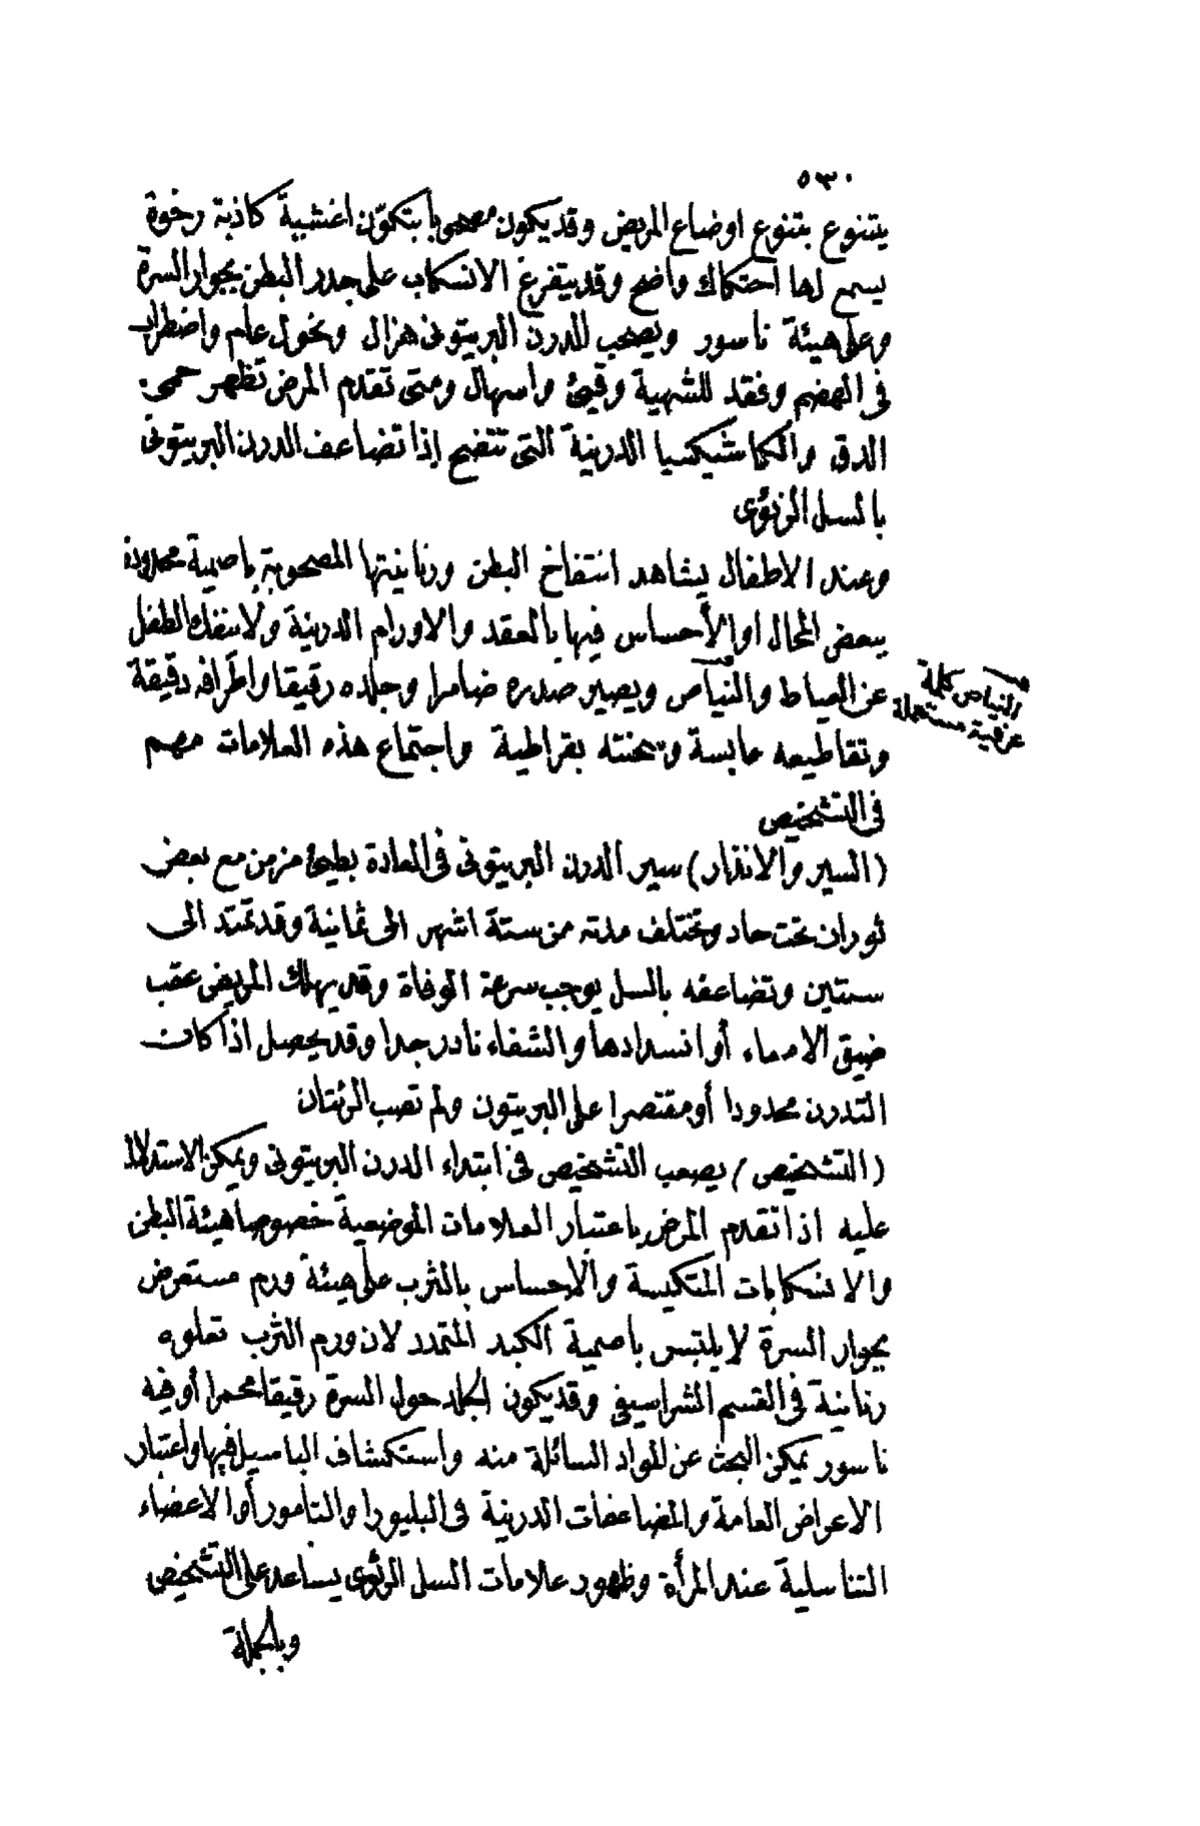 ٥٣٠
يتنوع بتنوع اوضاع المريض وقد يكون مصحوبا بتكوّن اغشية كاذبة رخوة
يسمع لها احتكاك واضح وقد يتفرغ الانسكاب على جدر البطن بجوار السرة
وعلى هيئة ناسور ويصحب للدرن البريتونى هزال ونحول عام واضطراب
فى الهضم وفقد للشهية وقيئ واسهال ومتى تقدم المرض تظهر حمى
الدق والكاشيكسيا الدرنية التى تتضح إذا تضاعف الدرن البريتونى
بالسل الرئوى
وعند الاطفال يشاهد انتفاخ البطن ورنانيتها المصحوبة باصمية محدودة
ببعض المحال اوالأحساس فيها بالعقد والاورام الدرنية ولا ينفك الطفل
عن العياط والنياص ويصير صدره ضامرا وجلده رقيقا واطرافه دقيقة
النياص كلمة
عرفية مستعملة
وتقاطيعه عابسة وسحنته بقراطية واجتماع هذه العلامات مهم
فى التشخيص
(السير والانذار) سير الدرن البريتونى فى العادة بطيئ مزمن مع بعض
ثوران تحت حاد وتختلف مدته من ستة اشهر الى ثمانية وقد تمتد الى
سنتين وتضاعفه بالسل يوجب سرعة الوفاة وقد يهلك المريض عقب
ضيق الامعاء أو انسدادها والشفاء نادر جدا وقد يحصل اذا كان
التدرن محدودا أو مقتصرا على البريتون ولم تصب الرئتان
(التشخيص) يصعب التشخيص فى ابتداء الدرن البريتونى ويمكن الاستدلال
عليه اذا تقدم المرض باعتبار العلامات الموضعية خصوصا هيئة البطن
والانسكابات المتكيسة والاحساس بالثرب على هيئة ورم مستعرض
بجوار السرة لا يلتبس باصمية الكبد المتمدد لان ورم الثرب تعلوه
رنانية فى القسم الشراسيفى وقد يكون الجلد حول السرة رقيقا محمرا أو فيه
ناسور يمكن البحث عن المواد السائلة منه واستكشاف الباسيل فيها واعتبار
الاعراض العامة والمضاعفات الدرنية فى البليورا والتامور أو الاعضاء
التناسلية عند المرأة وظهور علامات السل الرئوى يساعد على التشخيص
وبالجملة